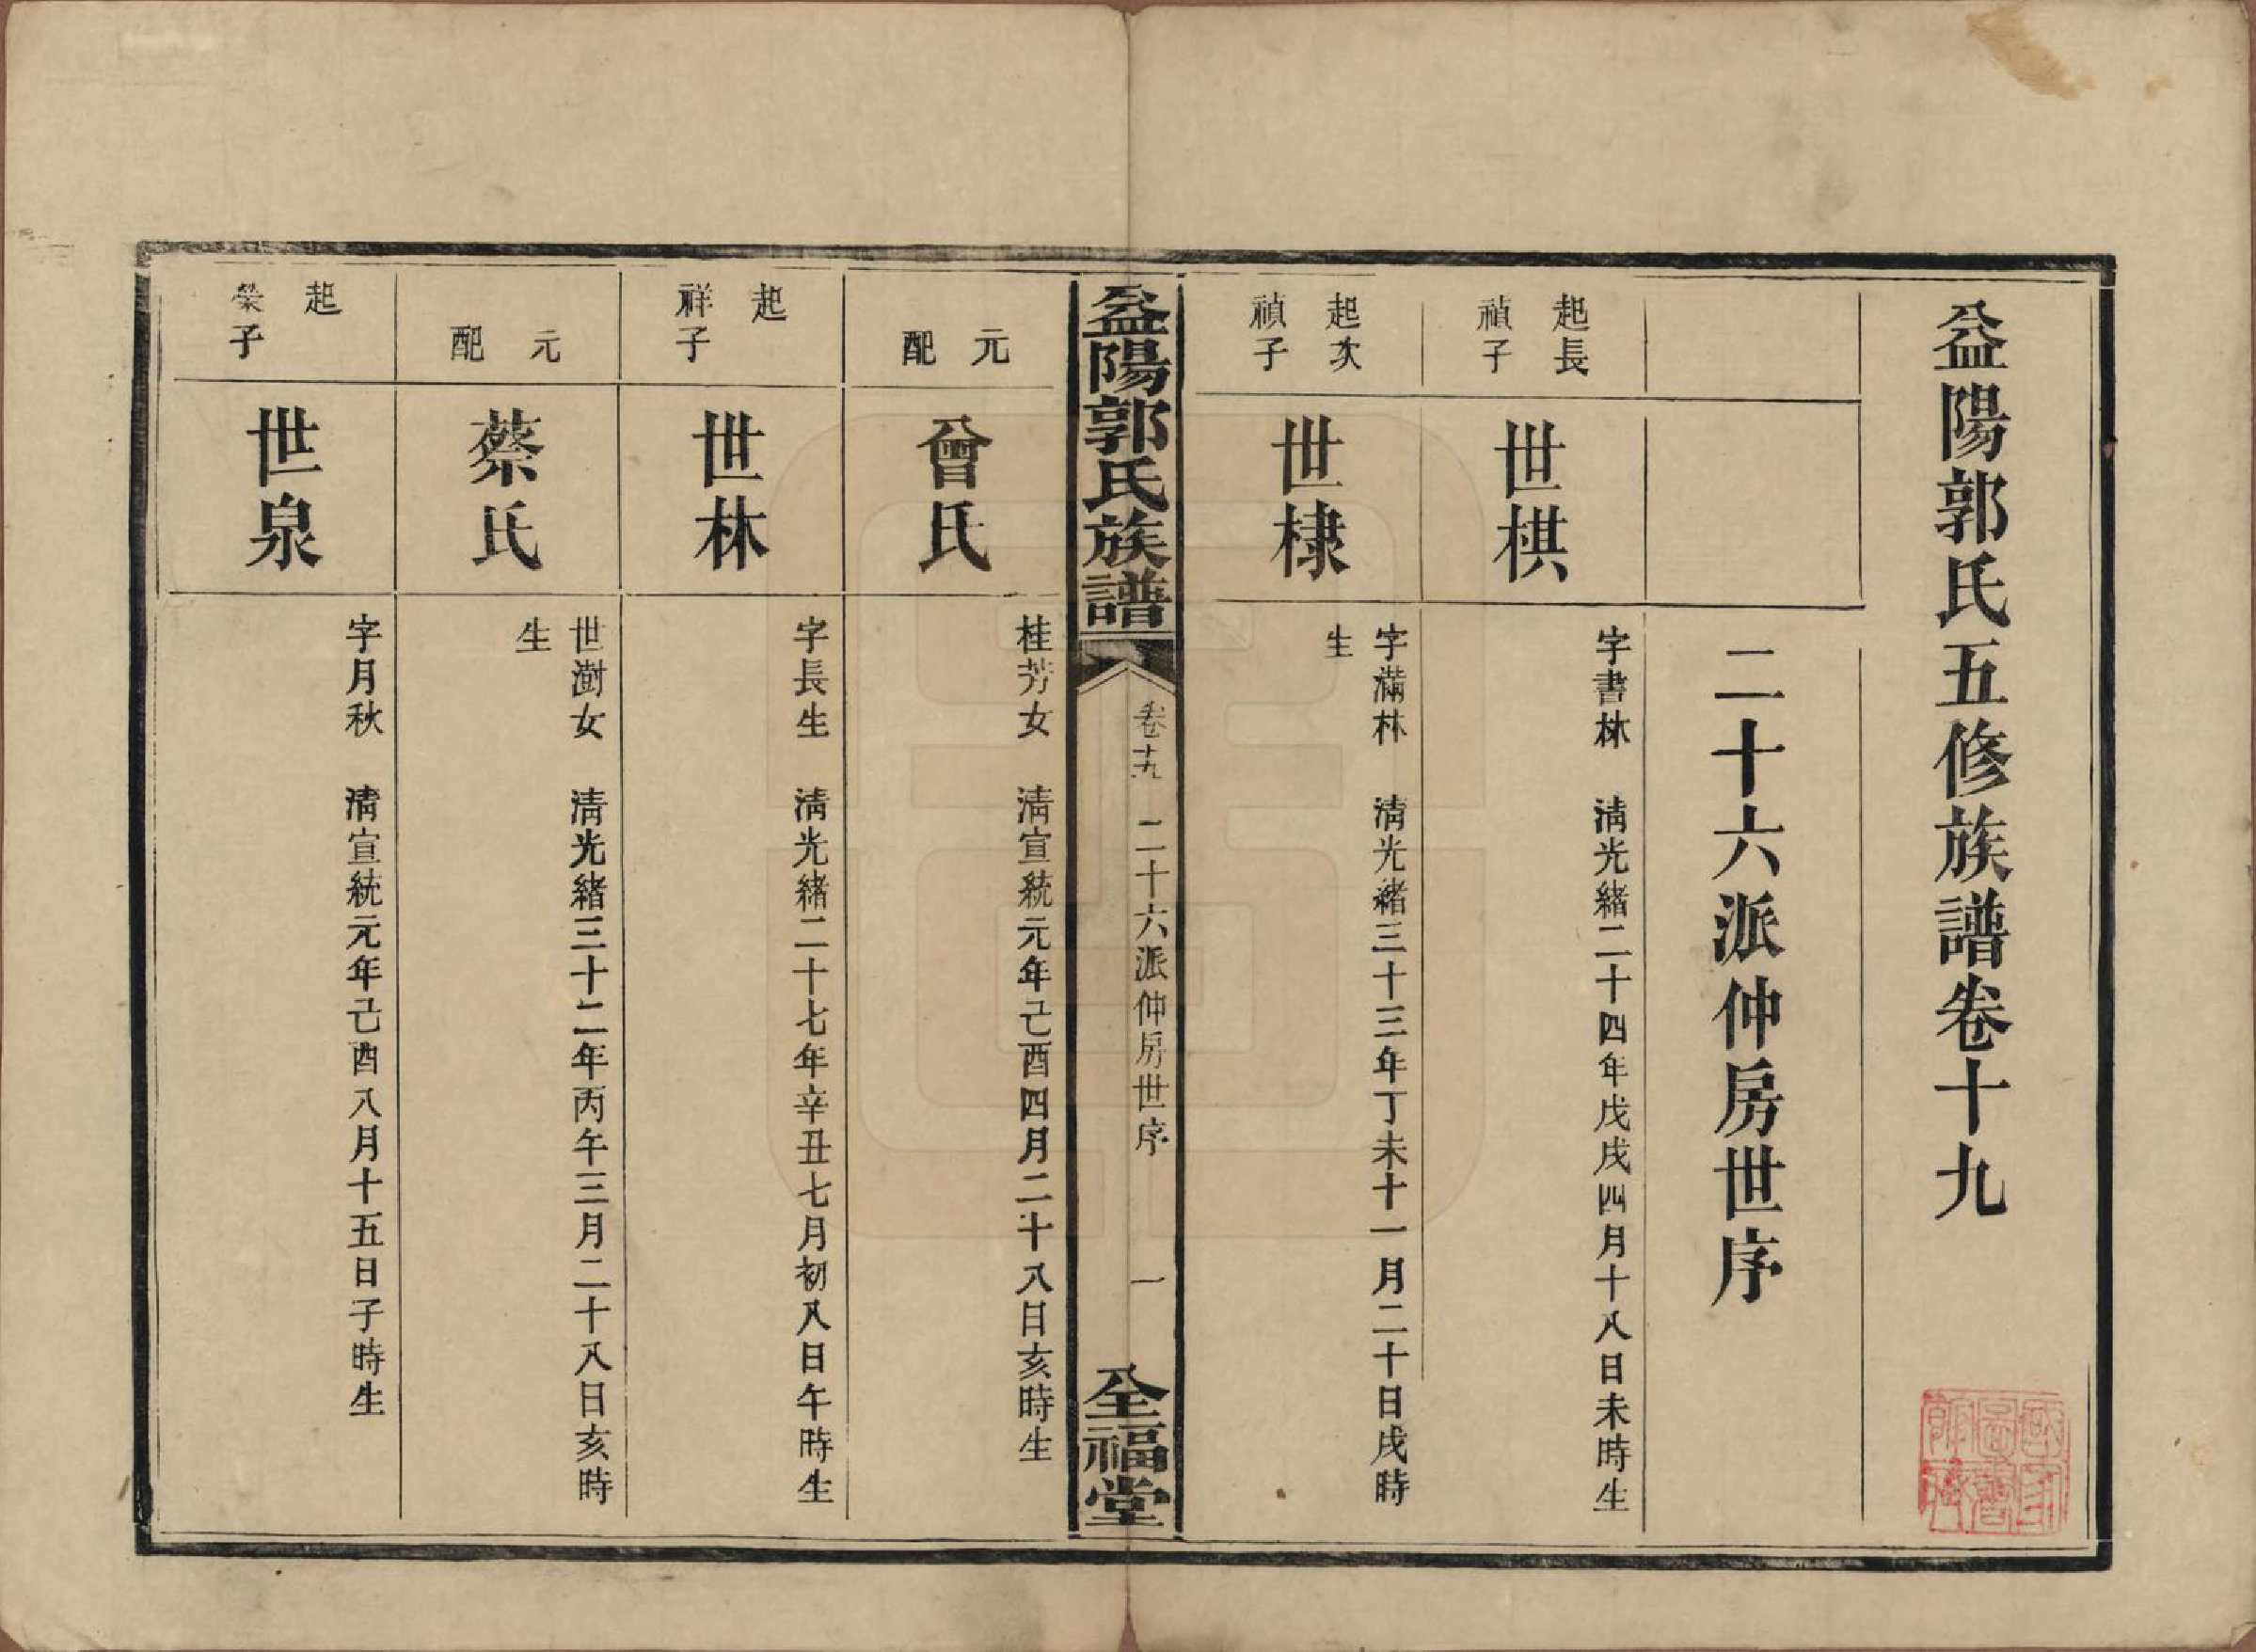 益陽郭氏五修族譜卷十九
二十六派仲房世序
起長
禎子
世棋
字書林　清光緒二十四年戊戌四月十八日未時生
起次
禎子
世棣
字滿林　清光緒三十三年丁未十一月二十日戌時
生
益陽郭氏族譜
卷十九　二十六派仲房世序　一
全福堂
元
配
曾氏
桂芳女　清宣統元年己酉四月二十八日亥時生
起
祥子
世林
字長生　清光緒二十七年辛丑七月初八日午時生
元
配
蔡氏
世澍女　清光緒三十二年丙午三月二十八日亥時
生
起
榮子
世泉
字月秋　清宣統元年己酉八月十五日子時生